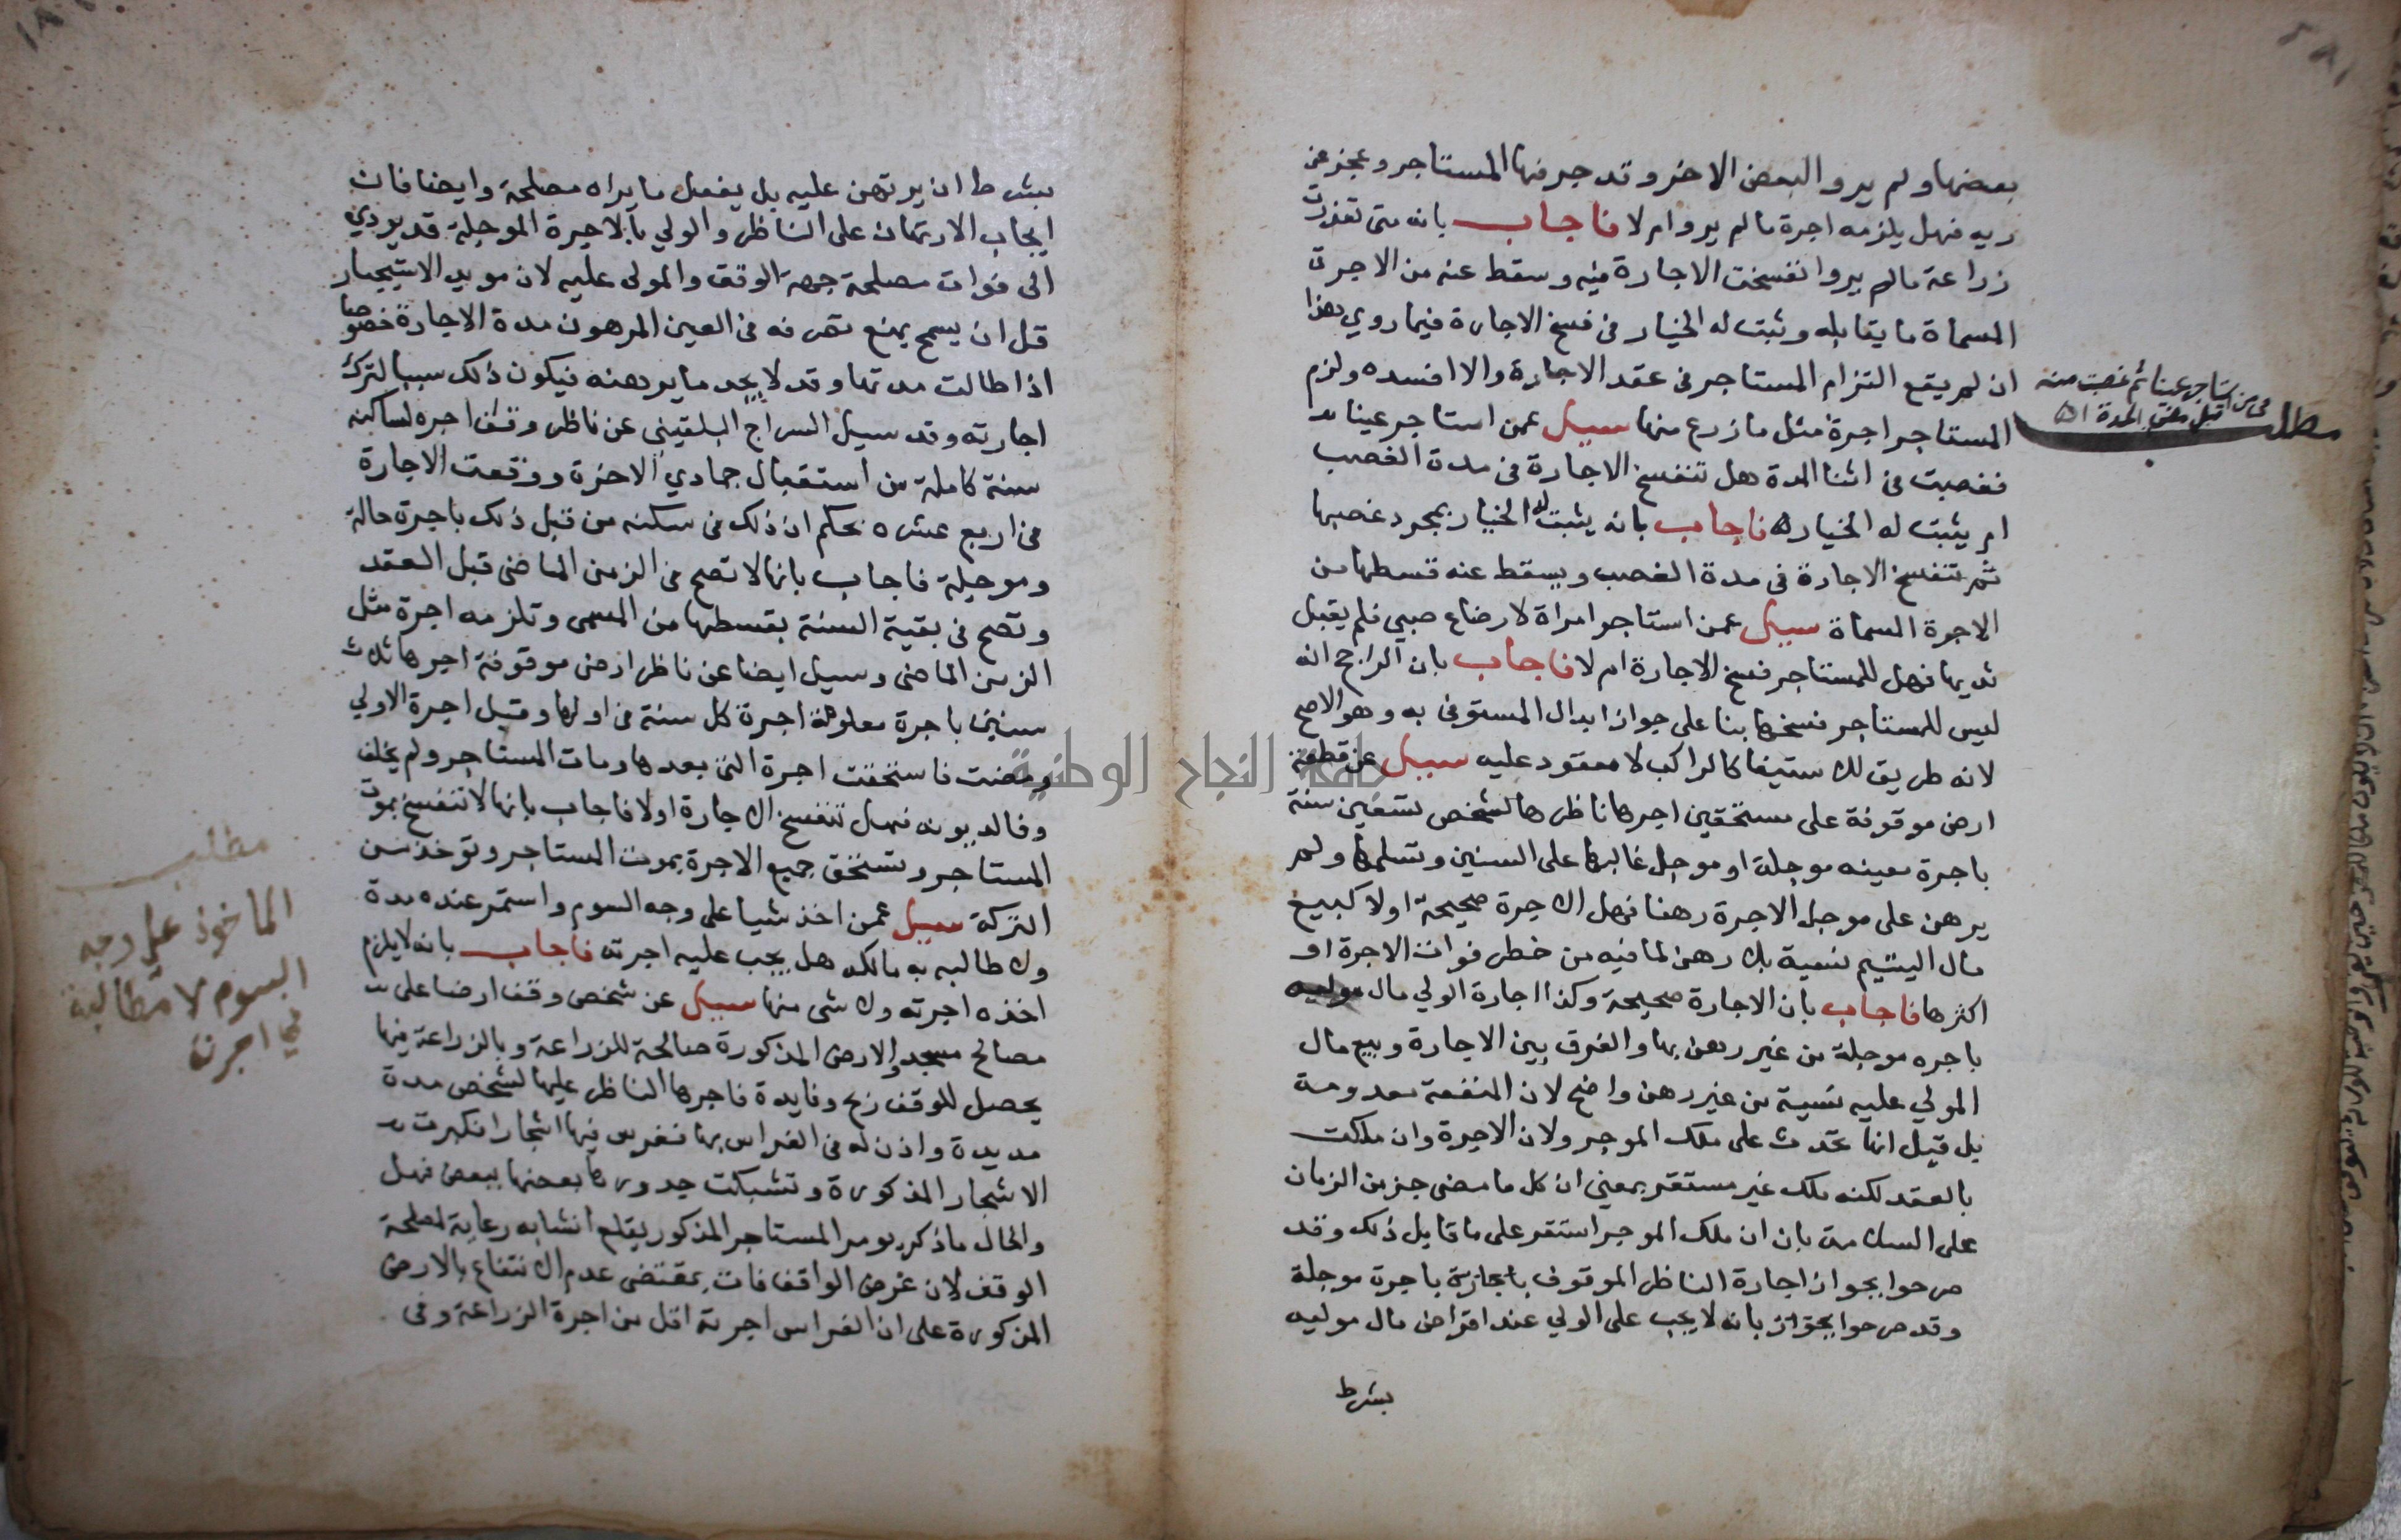 بعضها ولم يرو البعض الاخر وقد حرفها المستاجر وعجز عن
ريه فهل يلزمه اجرة مالم يرو ام لا فاجاب بانه متى تعذرت
زراعة مالم يرو انفسخت الاجارة فيه وسقط عنه من الاجرة
المسماة ما يقابله وثبت له الخيار في فسخ الاجارة فيما روي هذا
ان لم يقع التزام المستاجر في عقد الاجارة والا افسده ولزم
المستاجر اجرة مثل ما زرع منها سيل عمن استاجر عينا
فغصبت في اثنا المدة هل تنفسخ الاجارة في مدة الغصب
ام يثبت له الخيار فاجاب بانه يثبت له الخيار بمجرد غصبها
ثم تنفسخ الاجارة في مدة الغصب ويسقط عنه قسطها من
الاجرة المسماة سيل عمن استاجر امراة لارضاع صبي فلم يقبل
ثديها فهل للمستاجر فسخ الاجارة ام لا فاجاب بان الراجح انه
ليس للمستاجر فسخها بنا على جواز ابدال المستوفى به وهو الاصح
لانه طريق للاستيفا كالراكب لا معقود عليه سيل عن قطعة
ارض موقوفة على مستحقين اجرها ناظرها لشخص تسعين سنة
باجرة معينه موجلة او موجل غالبها على السنين وتسلمها ولم
يرهن على موجل الاجرة رهنا فهل الاجرة صحيحة اولا كبيع
مال اليتيم نسية بلا رهن لما فيه من خطر فوات الاجرة او
اكثرها فاجاب بان الاجارة صحيحة وكذا اجارة الولي مال موليه
باجره موجلة من غير رهن بها والفرق بين الاجارة وبيع مال
المولي عليه نسية من غير رهن واضح لان المنفعة معدومة
بل قيل انها تحدث على ملك الموجر ولان الاجرة وان ملكت
بالعقد لكنه ملك غير مستقر بمعني ان كل ما مضى جز من الزمان
على السلامة بان ان ملك الموجر استقر على ما قابل ذلك وقد
صرحوا بجواز اجارة الناظر الموقوف باجرة موجلة
وقد صرحوا بانه لا يجب على الولي عند اقراض مال موليه
بشرط
مطلب
في من استاجر عينا ثم غصبت منه
قبل مضي المدة
بشرط ان يرتهن عليه بل يفعل ما يراه مصلحة وايضا فان
ايجاب الارتهان على الناظر والولي بالاجرة الموجلة قد يودي
الى فوات مصلحة جهة الوقف والمولى عليه لان مريد الاستيجار
قل ان يسمح بمنع تصرفه في العين المرهون مدة الاجارة خصوصا
اذا طالت مدتها وقد لا يجد ما يرهنه فيكون ذلك سببا لترك
اجارته وقد سيل السراج البلقيني عن ناظر وقف اجره لساكنه
سنة كاملة من استقبال جمادي الاخرة ووقعت الاجارة
في اربع عشره بحكم ان ذلك في سكنه من قبل ذلك باجرة حالة
وموجلة فاجاب بانها لا تصح في الزمن الماضي قبل العقد
وتصح في بقية السنة بقسطها من المسمى وتلزمه اجرة مثل
الزمن الماضي وسيل ايضا عن ناظر ارض موقوفة اجرها ثلاث
سنين باجرة معلومة اجرة كل سنة في اولها وقبل اجرة الاولي
ومضت فاستحقت اجرة التي بعدها ومات المستاجر ولم يخلف
وفا لديونه فهل تنفسخ الاجارة اولا فاجاب بانها لا تنفسخ بموت
المستاجر وتستحق جميع الاجرة بموت المستاجر وتوخذ من
التركة سيل عمن اخذ شيا على وجه السوم واستمر عنده مدة
ولا طالبه به مالكه هل يجب عليه اجرته فاجاب بانه لا يلزم
اخذه اجرته ولا شي منها سيل عن شخص وقف ارضا على
مصالح مسجد والارض المذكورة صالحة للزراعة وبالزراعة فيها
يحصل للوقف ربح وفايدة فاجرها الناظر عليها لشخص مدة
مديدة واذن له في الغراس بها فغرس فيها اشجارا فكبرت
الاشجار المذكورة وتشبكت جدورها بعضها ببعض فهل
والحال ما ذكر يومر المستاجر المذكور بقلع انشابه رعاية لمصلحة
الوقف لان غرض الواقف فات بمقتضى عدم الانتفاع بالارض
المذكورة على ان الغراس اجرته اقل من اجرة الزراعة وفي
مطلب
الماخوذ على وجه
السوم لا مطالبة
في اجرته
جامعة النجاح الوطنية